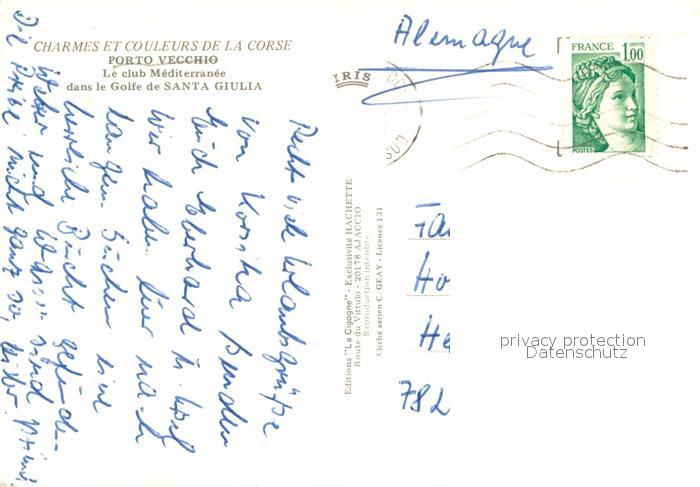 CHARMES ET COULEURS DE LA CORSE
PORTO VECCHIO
Le club Méditerranée
dans le Golfe de SANTA GIULIA
IRIS
Alemagne
FRANCE
1,00
POSTES
SUD
Recht viele Urlaubsgrüße
von Korsika senden
Euch Eberhard u.
Wir haben hier nach
langem Suchen eine
herrliche Bucht gefunden
Wetter und Wasser sind prima
Die Preise nicht ganz so, leider.
Editions "La Cigogne" - Exclusivité HACHETTE
Route du Vittulo - 20178 AJACCIO
Reproduction interdite
Cliché aérien C. GEAY - Licence 131
Fa
Ho
He
782
privacy protection
Datenschutz